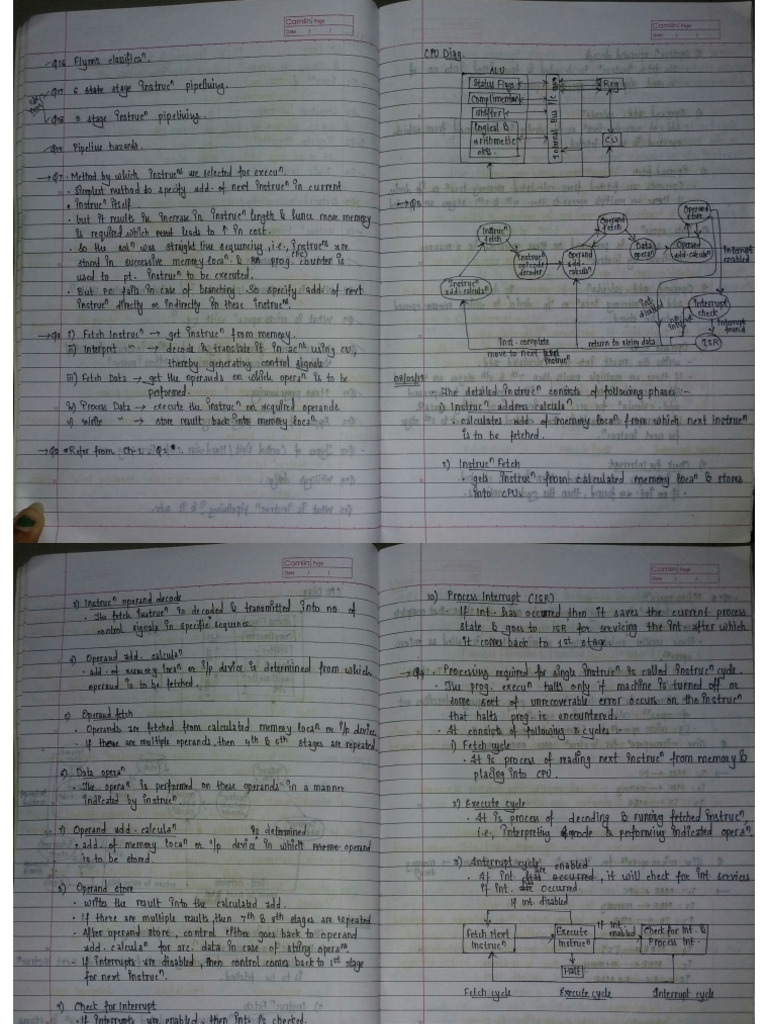 Camlin Page
Date / /
Q16 Flynns classificaⁿ.
Q17 6 state stage instrucⁿ pipelining.
Q18 5 stage instrucⁿ pipelining.
Q19 Pipeline hazards.
Q7 · Method by which instrucⁿˢ are selected for execuⁿ.
· Simplest method to specify add. of next instrucⁿ in current
· instrucⁿ itself.
· but it results in increase in instrucⁿ length & hence more memory
is required which next leads to ↑ in cost.
· So the solⁿ was straight line sequencing, i.e., instrucⁿˢ are
stored in successive memory locaⁿ & prog. counter (PC) is
used to pt. instrucⁿ to be executed.
· But PC fails in case of branching. So specify add. of next
instrucⁿ directly or indirectly in these instrucⁿˢ.
Q8 i) Fetch Instrucⁿ → get instrucⁿ from memory.
ii) Interpret " → decode & translate it in acⁿˢ using CU,
thereby generating control signals
iii) Fetch Data → get the operands on which operaⁿ is to be
performed.
iv) Process Data → execute the instrucⁿ on acquired operands.
v) write " → store result back into memory locaⁿ
Q2 *Refer from Ch-1. Q2*.
Camlin Page
Date / /
CPU Diag.
ALU
Status Flags
Complimenter
Shifter
logical &
arithmetic
ckts.
Internal Bus
Reg
CU
Instrucⁿ fetch
Instrucⁿ opcode decoder
Instrucⁿ add. calculaⁿ
Operand add. calculaⁿ
Operand fetch
Data operaⁿ
Operand store
Operand add. calculaⁿ
Interrupt enabled
Interrupt check
Int disabled
No interrupt
Interrupt found
ISR
Inst. complete
move to next instrucⁿ
return to string data
· The detailed instrucⁿ consists of following phases :-
1) Instrucⁿ address calculaⁿ
· calculates add. of memory locaⁿ from which next instrucⁿ
is to be fetched.
2) Instrucⁿ Fetch
· gets instrucⁿ from calculated memory locaⁿ & stores
into CPU.
Camlin Page
Date / /
3) Instrucⁿ operand decode
· The fetch instrucⁿ is decoded & transmitted into no of
control signals in specific sequence.
4) Operand add. calculaⁿ
· add. of memory locaⁿ or i/p device is determined from which
operand is to be fetched.
5) Operand fetch
· Operands are fetched from calculated memory locaⁿ or i/p device
· If there are multiple operands, then 4th & 5th stages are repeated
6) Data operaⁿ
· The operaⁿ is performed on these operands in a manner
indicated by instrucⁿ.
7) Operand add. calculaⁿ
· add. of memory locaⁿ or i/p device is determined in which memo operand
is to be stored.
8) Operand store
· Writes the result into the calculated add.
· If there are multiple results, then 7th & 8th stages are repeated
· After operand store, control either goes back to operand
add. calculaⁿ for src. data in case of string operaⁿˢ.
· If interrupts are disabled, then control comes back to 1st stage
for next instrucⁿ.
9) Check for Interrupt
· If interrupts are enabled, then int. is checked.
Camlin Page
Date / /
10) Process Interrupt (ISR)
If int. has occurred then it saves the current process
state & goes to ISR for servicing the int. after which
it comes back to 1st stage.
Q9 · Processing required for single instrucⁿ is called instrucⁿ cycle.
· The prog. execuⁿ halts only if machine is turned off or
some sort of unrecoverable error occurs on the instrucⁿ
that halts prog. is encountered.
· It consists of following 3 cycles :-
1) Fetch cycle
· It is process of reading next instrucⁿ from memory &
placing into CPU.
2) Execute cycle
· It is process of decoding & running fetched instrucⁿ,
i.e., interpreting opcode & performing indicated operaⁿ.
3) Interrupt cycle
· If int. are enabled, it will check for int. services
if int. occurred.
If int. disabled
Fetch Next Instrucⁿ
Execute Instrucⁿ
If int. enabled
Check for Int. & Process Int.
Halt
Fetch cycle
Execute cycle
Interrupt cycle